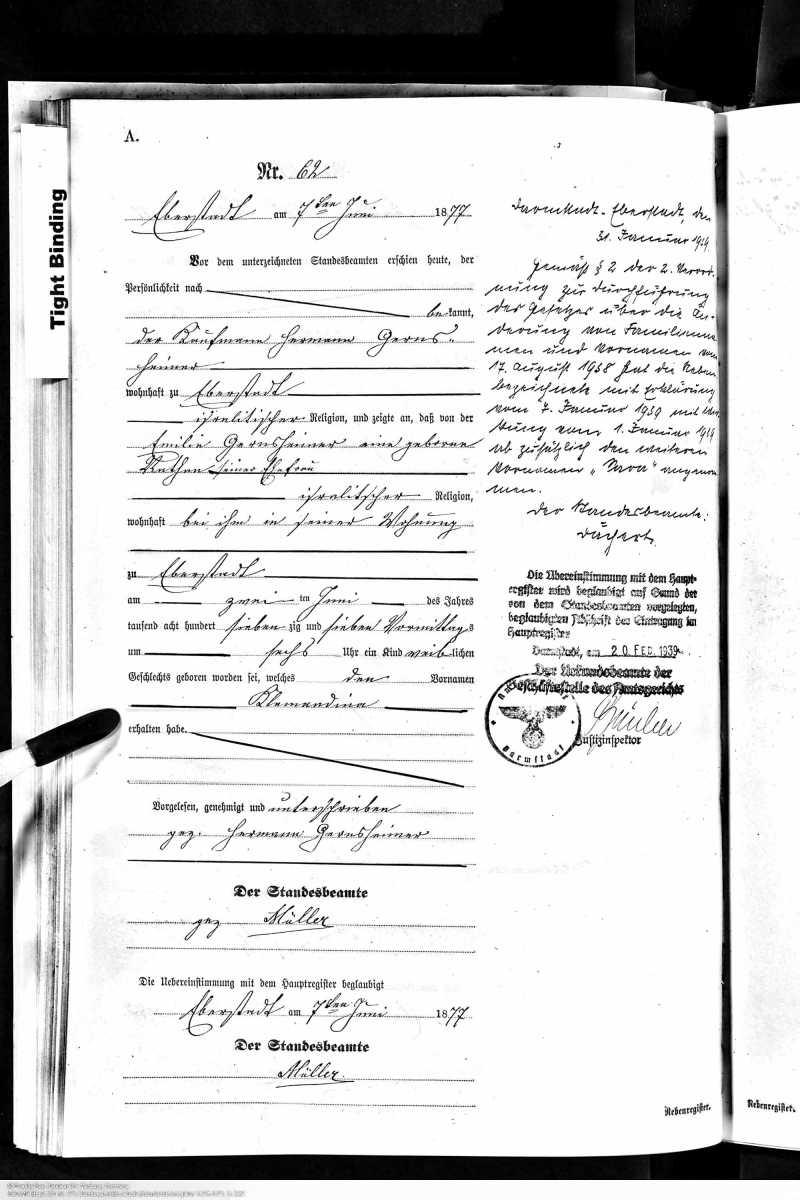 Tight Binding
A.
Nr. 62
Eberstadt am 7ten Juni 1877
Vor dem unterzeichneten Standesbeamten erschien heute, der
Persönlichkeit nach
bekannt,
der Kaufmann Hermann Gerns-
heimer
wohnhaft zu Eberstadt
isralitischer Religion, und zeigte an, daß von der
Emilie Gernsheimer eine geborene
Nathan seiner Ehefrau
isralitscher Religion,
wohnhaft bei ihm in seiner Wohnung
zu Eberstadt
am zwei ten Juni des Jahres
tausend acht hundert sieben zig und sieben Vormittags
um sechs Uhr ein Kind weiblichen
Geschlechts geboren worden sei, welches den Vornamen
Klemandina
erhalten habe.
Vorgelesen, genehmigt und unterschrieben
gez. Hermann Gernsheimer
Der Standesbeamte
gez Müller
Die Uebereinstimmung mit dem Hauptregister beglaubigt
Eberstadt am 7ten Juni 1877
Der Standesbeamte
Müller.
Darmstadt-Eberstadt, den
31. Januar 1939.
Gemäß § 2 der 2. Verord-
nung zur Durchführung
des Gesetzes über die Än-
derung von Familienna-
men und Vornamen vom
17. August 1938 hat die Neben-
bezeichnete mit Erklärung
vom 7. Januar 1939 mit Wir-
kung vom 1. Januar 1939
ab zusätzlich den weiteren
Vornamen „Sara“ angenom-
men.
Der Standesbeamte:
Die Übereinstimmung mit dem Haupt-
register wird beglaubigt auf Grund der
von dem Standesbeamten vorgelegten,
beglaubigten Abschrift der Eintragung im
Hauptregister
Darmstadt, am 20. FEB. 1939
Der Urkundsbeamte der
Geschäftsstelle des Amtsgerichts
Justizinspektor
Darmstadt
Nebenregister.
Nebenregister.